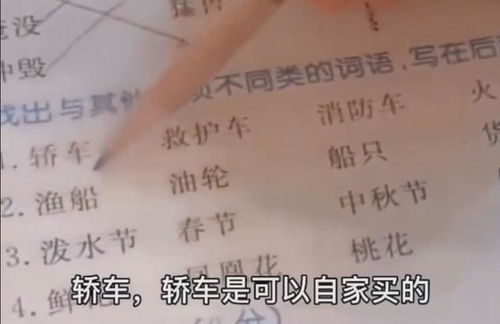 淹没
冲毁
找出与其他 项不同类的词语,写在后
1. 轿车 救护车 消防车 火
2. 渔船 油轮 船只 货
3. 泼水节 春节 中秋节
4. 鲜花 凤凰花 桃花
轿车，轿车是可以自家买的
分)